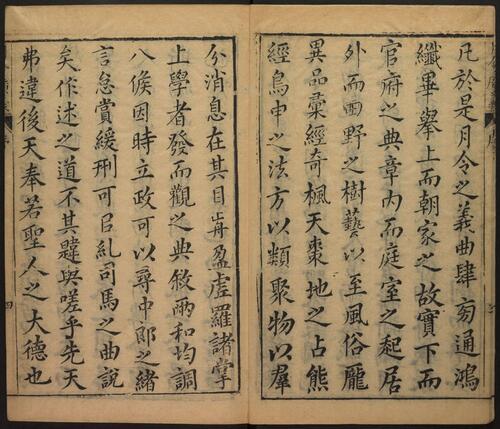 凡於是月令之義曲肆旁通鴻
纖畢舉上而朝家之故實下而
官府之典章內而庭室之起居
外而田野之樹藝以至風俗龐
異品彙經奇楓天棗地之占熊
經鳥申之法方以類聚物以羣
分消息在其目歬盈虛羅諸掌
上學者發而觀之典敘兩和均調
八候因時立政可以尋中郎之緒
言怠賞緩刑可㠯糺司馬之曲說
矣作述之道不其韙與嗟乎先天
弗違後天奉若聖人之大德也
四